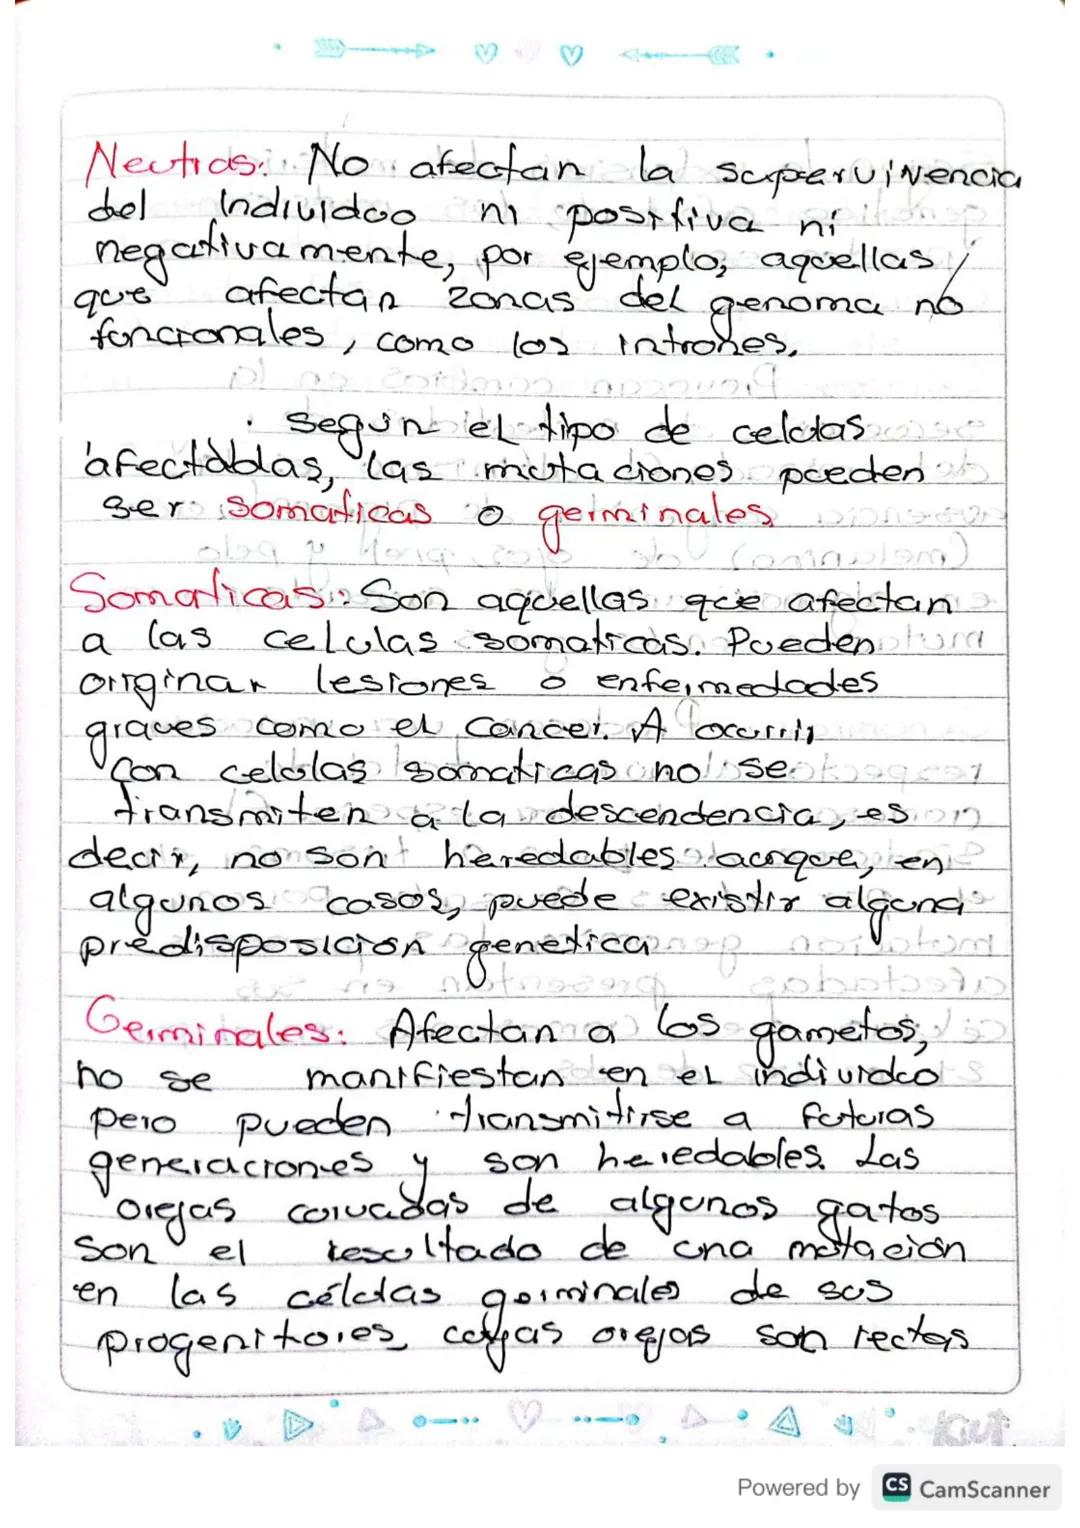 Neutras: No afectan la supervivencia
del individuo ni positiva ni
negativamente, por ejemplo, aquellas
que afectan zonas del genoma no
funcionales, como los intrones.
· Según el tipo de celulas
afectablas, las mutaciones pueden
ser somaticas o germinales
Somaticas: Son aquellas que afectan
a las celulas somaticas. Pueden
originar lesiones o enfermedades
graves como el cancer. A ocurrir
con celulas somaticas no se
transmiten a la descendencia, es
decir, no son heredables aunque, en
algunos casos, puede existir alguna
predisposicion genetica
Germinales: Afectan a los gametos,
no se manifiestan en el individuo
pero pueden transmitirse a futuras
generaciones y son heredables. Las
orejas corvadas de algunos gatos
son el resultado de una mutación
en las células germinales de sus
progenitores, cuyas orejas son rectas
Powered by CS CamScanner